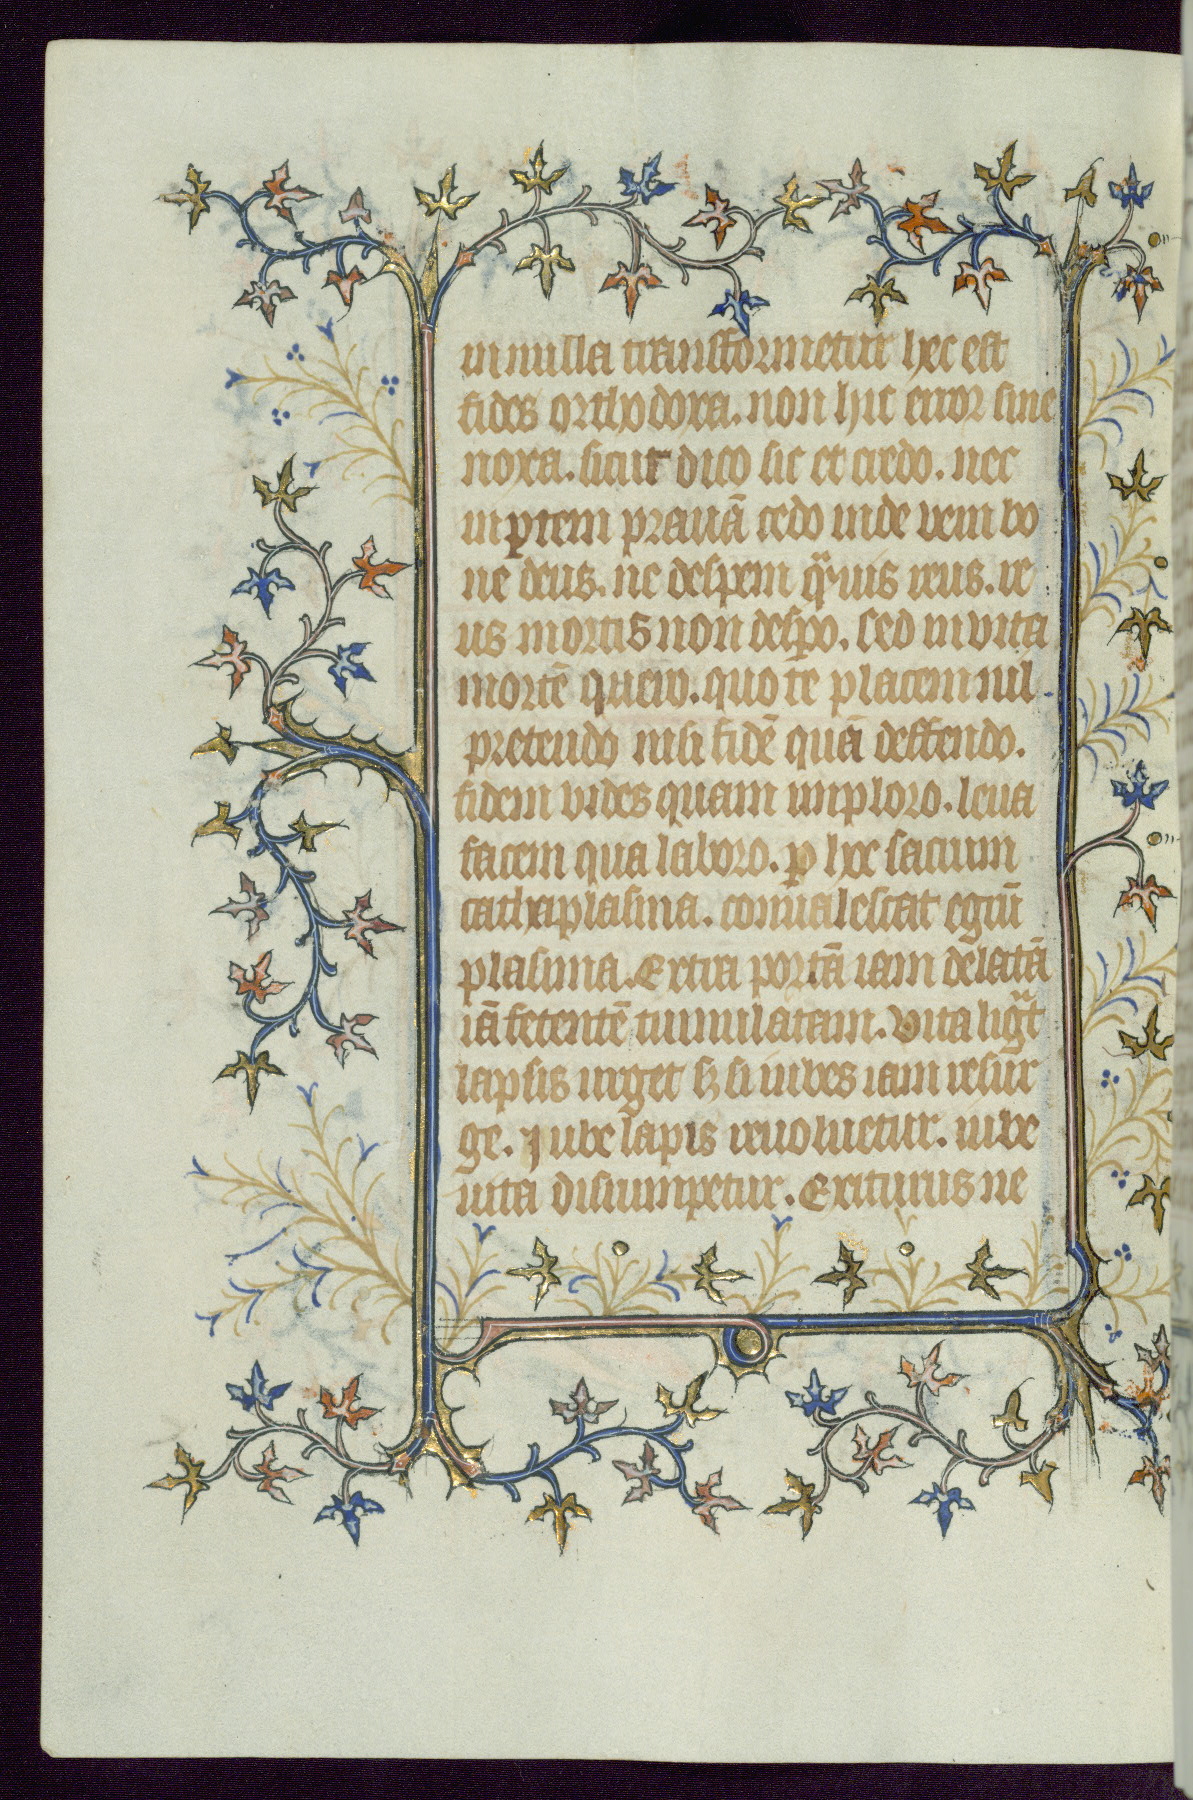 in nulla transformetur hec est
fides orthodoxa. non hic error sine
noxa. sicut dico sic et credo. nec
in ptem prauā cedo inde veni bo
ne deus. ne desperem q̈uis reus. re
us mortis non despo. sed in vita
mortē quero. quo te placem nil
pretendo nisi fidē quā deffendo.
fidem vides quam imploro. leua
facem qua laboro. p hoc sacrum
cathaplasma. conualescat egrū
plasma. Extra portā iam delatā
iā fetentē tumulatam. vita ligat
lapsis urget sꝫ si iubes iam resur
ge. Jube lapis reuoluetur. iube
uita disrumpetur. Exiturus ne